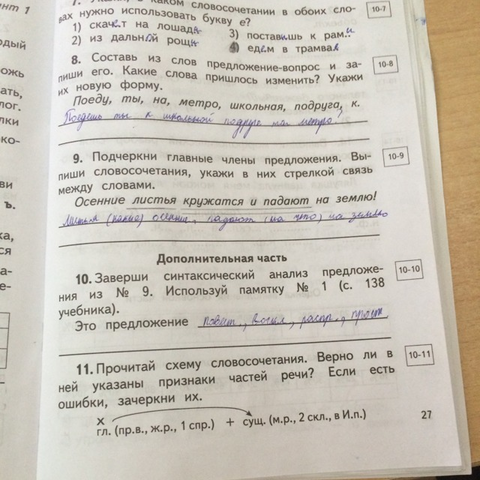 ант 1
7. в каком словосочетании в обоих сло-
вах нужно использовать букву е? 10-7
1) скачет на лошадь 3) поставишь к рам.и
2) из дальней рощи 4) едем в трамвай
8. Составь из слов предложение-вопрос и за-
пиши его. Какие слова пришлось изменить? Укажи 10-8
их новую форму.
Поеду, ты, на, метро, школьная, подруга, к.
Поедешь ты к школьной подруге на метро?
9. Подчеркни главные члены предложения. Вы-
пиши словосочетания, укажи в них стрелкой связь 10-9
между словами.
Осенние листья кружатся и падают на землю!
Листья (какие) осенние, падают (на что) на землю
Дополнительная часть
10. Заверши синтаксический анализ предложе- 10-10
ния из № 9. Используй памятку № 1 (с. 138
учебника).
Это предложение повест., воскл., распр., прост
11. Прочитай схему словосочетания. Верно ли в 10-11
ней указаны признаки частей речи? Если есть
ошибки, зачеркни их.
х
гл. (пр.в., ж.р., 1 спр.) + сущ. (м.р., 2 скл., в И.п.)
27